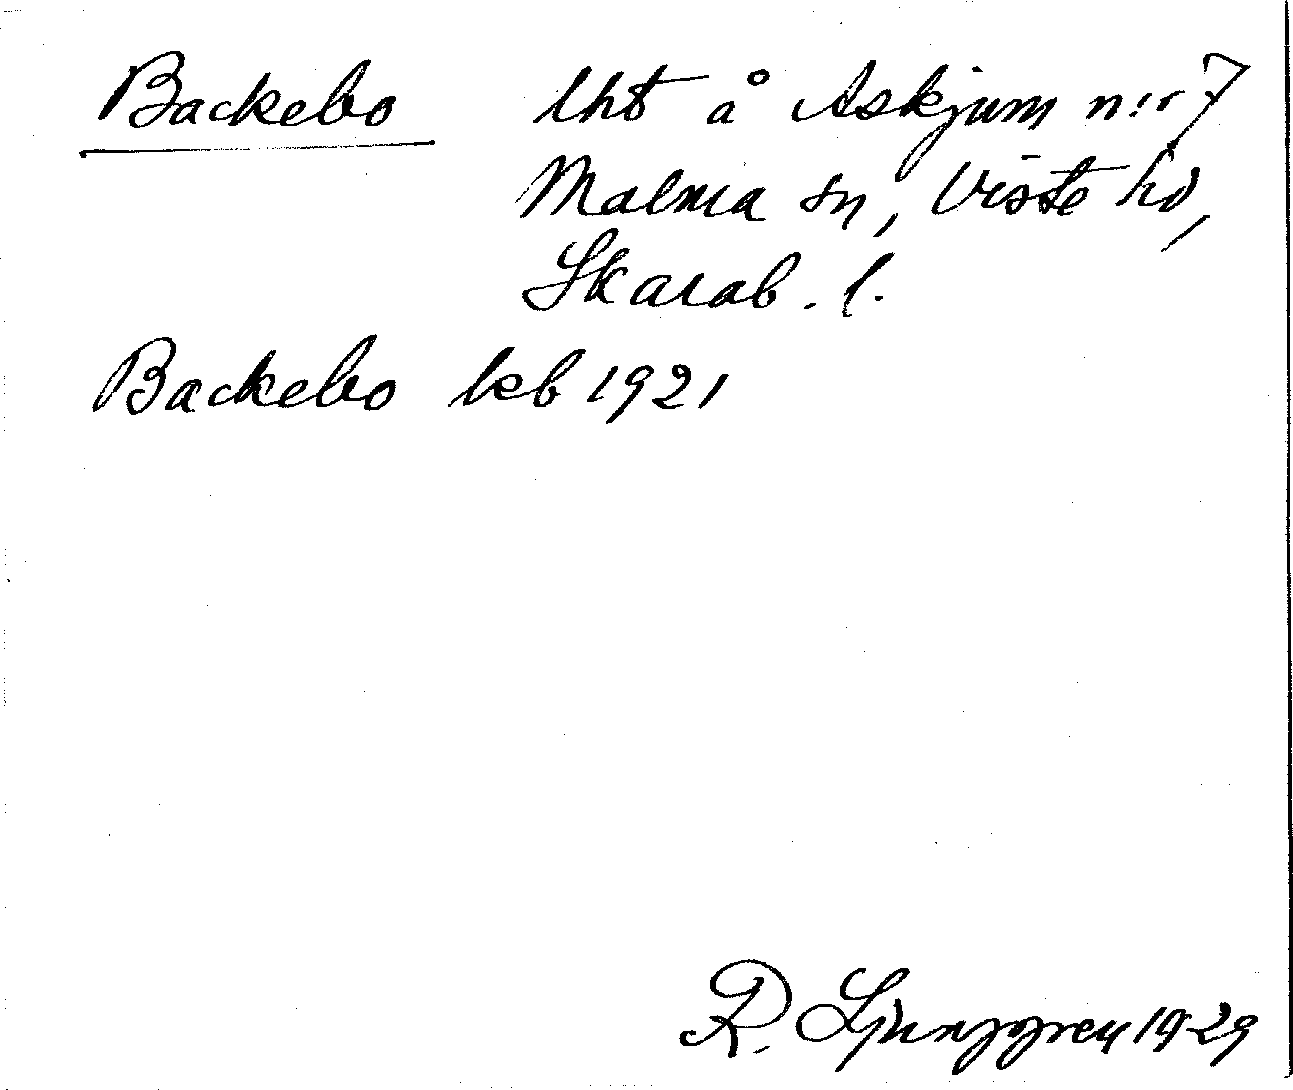 Backebo lht å Askjum n:r 7
Malma sn, Viste hd,
Skarab. l.
Backebo kb 1921
R. Ljunggren 1929